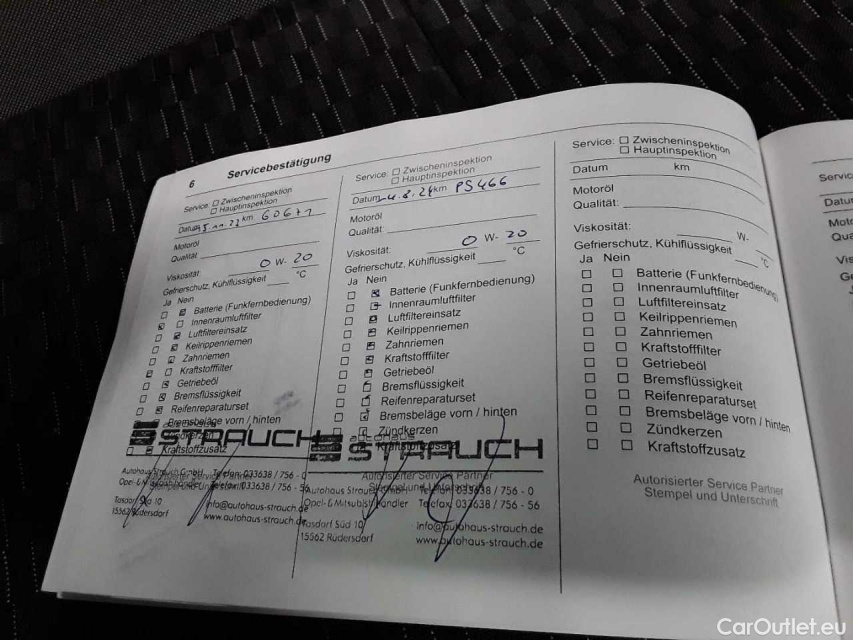 6 Servicebestätigung
Service: ☐ Zwischeninspektion
☐ Hauptinspektion
Datum km 60671
Motoröl
Qualität:
Viskosität: 0 W- 20
Gefrierschutz, Kühlflüssigkeit °C
Ja Nein
Batterie (Funkfernbedienung)
Innenraumluftfilter
Luftfiltereinsatz
Keilrippenriemen
Zahnriemen
Kraftstofffilter
Getriebeöl
Bremsflüssigkeit
Reifenreparaturset
Bremsbeläge vorn / hinten
Zündkerzen
Kraftstoffzusatz
STRAUCH
Autorisierter Service Partner
Stempel und Unterschrift
Autohaus Strauch GmbH Telefon 033638 / 756 - 0
Opel- & Mitsubishihändler Telefax 033638 / 756 - 56
Tasdorf Süd 10 info@autohaus-strauch.de
15562 Rüdersdorf www.autohaus-strauch.de
Service: ☐ Zwischeninspektion
☐ Hauptinspektion
Datum km
Motoröl
Qualität:
Viskosität: 0 W- 20
Gefrierschutz, Kühlflüssigkeit °C
Ja Nein
Batterie (Funkfernbedienung)
Innenraumluftfilter
Luftfiltereinsatz
Keilrippenriemen
Zahnriemen
Kraftstofffilter
Getriebeöl
Bremsflüssigkeit
Reifenreparaturset
Bremsbeläge vorn / hinten
Zündkerzen
Kraftstoffzusatz
autohaus
STRAUCH
Autorisierter Service Partner
Stempel und Unterschrift
Autohaus Strauch GmbH Telefon 033638 / 756 - 0
Opel- & Mitsubishihändler Telefax 033638 / 756 - 56
Tasdorf Süd 10 info@autohaus-strauch.de
15562 Rüdersdorf www.autohaus-strauch.de
Service: ☐ Zwischeninspektion
☐ Hauptinspektion
Datum km
Motoröl
Qualität:
Viskosität: W-
Gefrierschutz, Kühlflüssigkeit °C
Ja Nein
Batterie (Funkfernbedienung)
Innenraumluftfilter
Luftfiltereinsatz
Keilrippenriemen
Zahnriemen
Kraftstofffilter
Getriebeöl
Bremsflüssigkeit
Reifenreparaturset
Bremsbeläge vorn / hinten
Zündkerzen
Kraftstoffzusatz
Autorisierter Service Partner
Stempel und Unterschrift
CarOutlet.eu